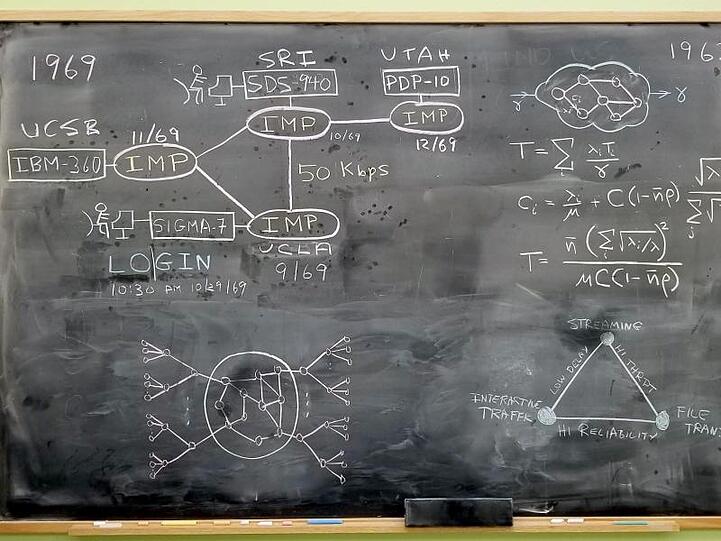 1969
SRI
SDS-940
UTAH
PDP-10
UCSB
11/69
IBM-360
IMP
IMP
10/69
IMP
12/69
50 Kbps
SIGMA-7
IMP
UCLA
9/69
LO|GIN
10:30 AM 10/29/69
196
γ
γ
T = Σ λi Ti / γ
i
Ci = λi / μ + C(1 - n̄ρ) √λ / Σ √
j
T = n̄ (Σ √λi/λ)² / μC(1 - n̄ρ)
i
STREAMING
LOW DELAY
HI THRPT
INTERACTIVE
TRAFFIC
HI RELIABILITY
FILE
TRAN